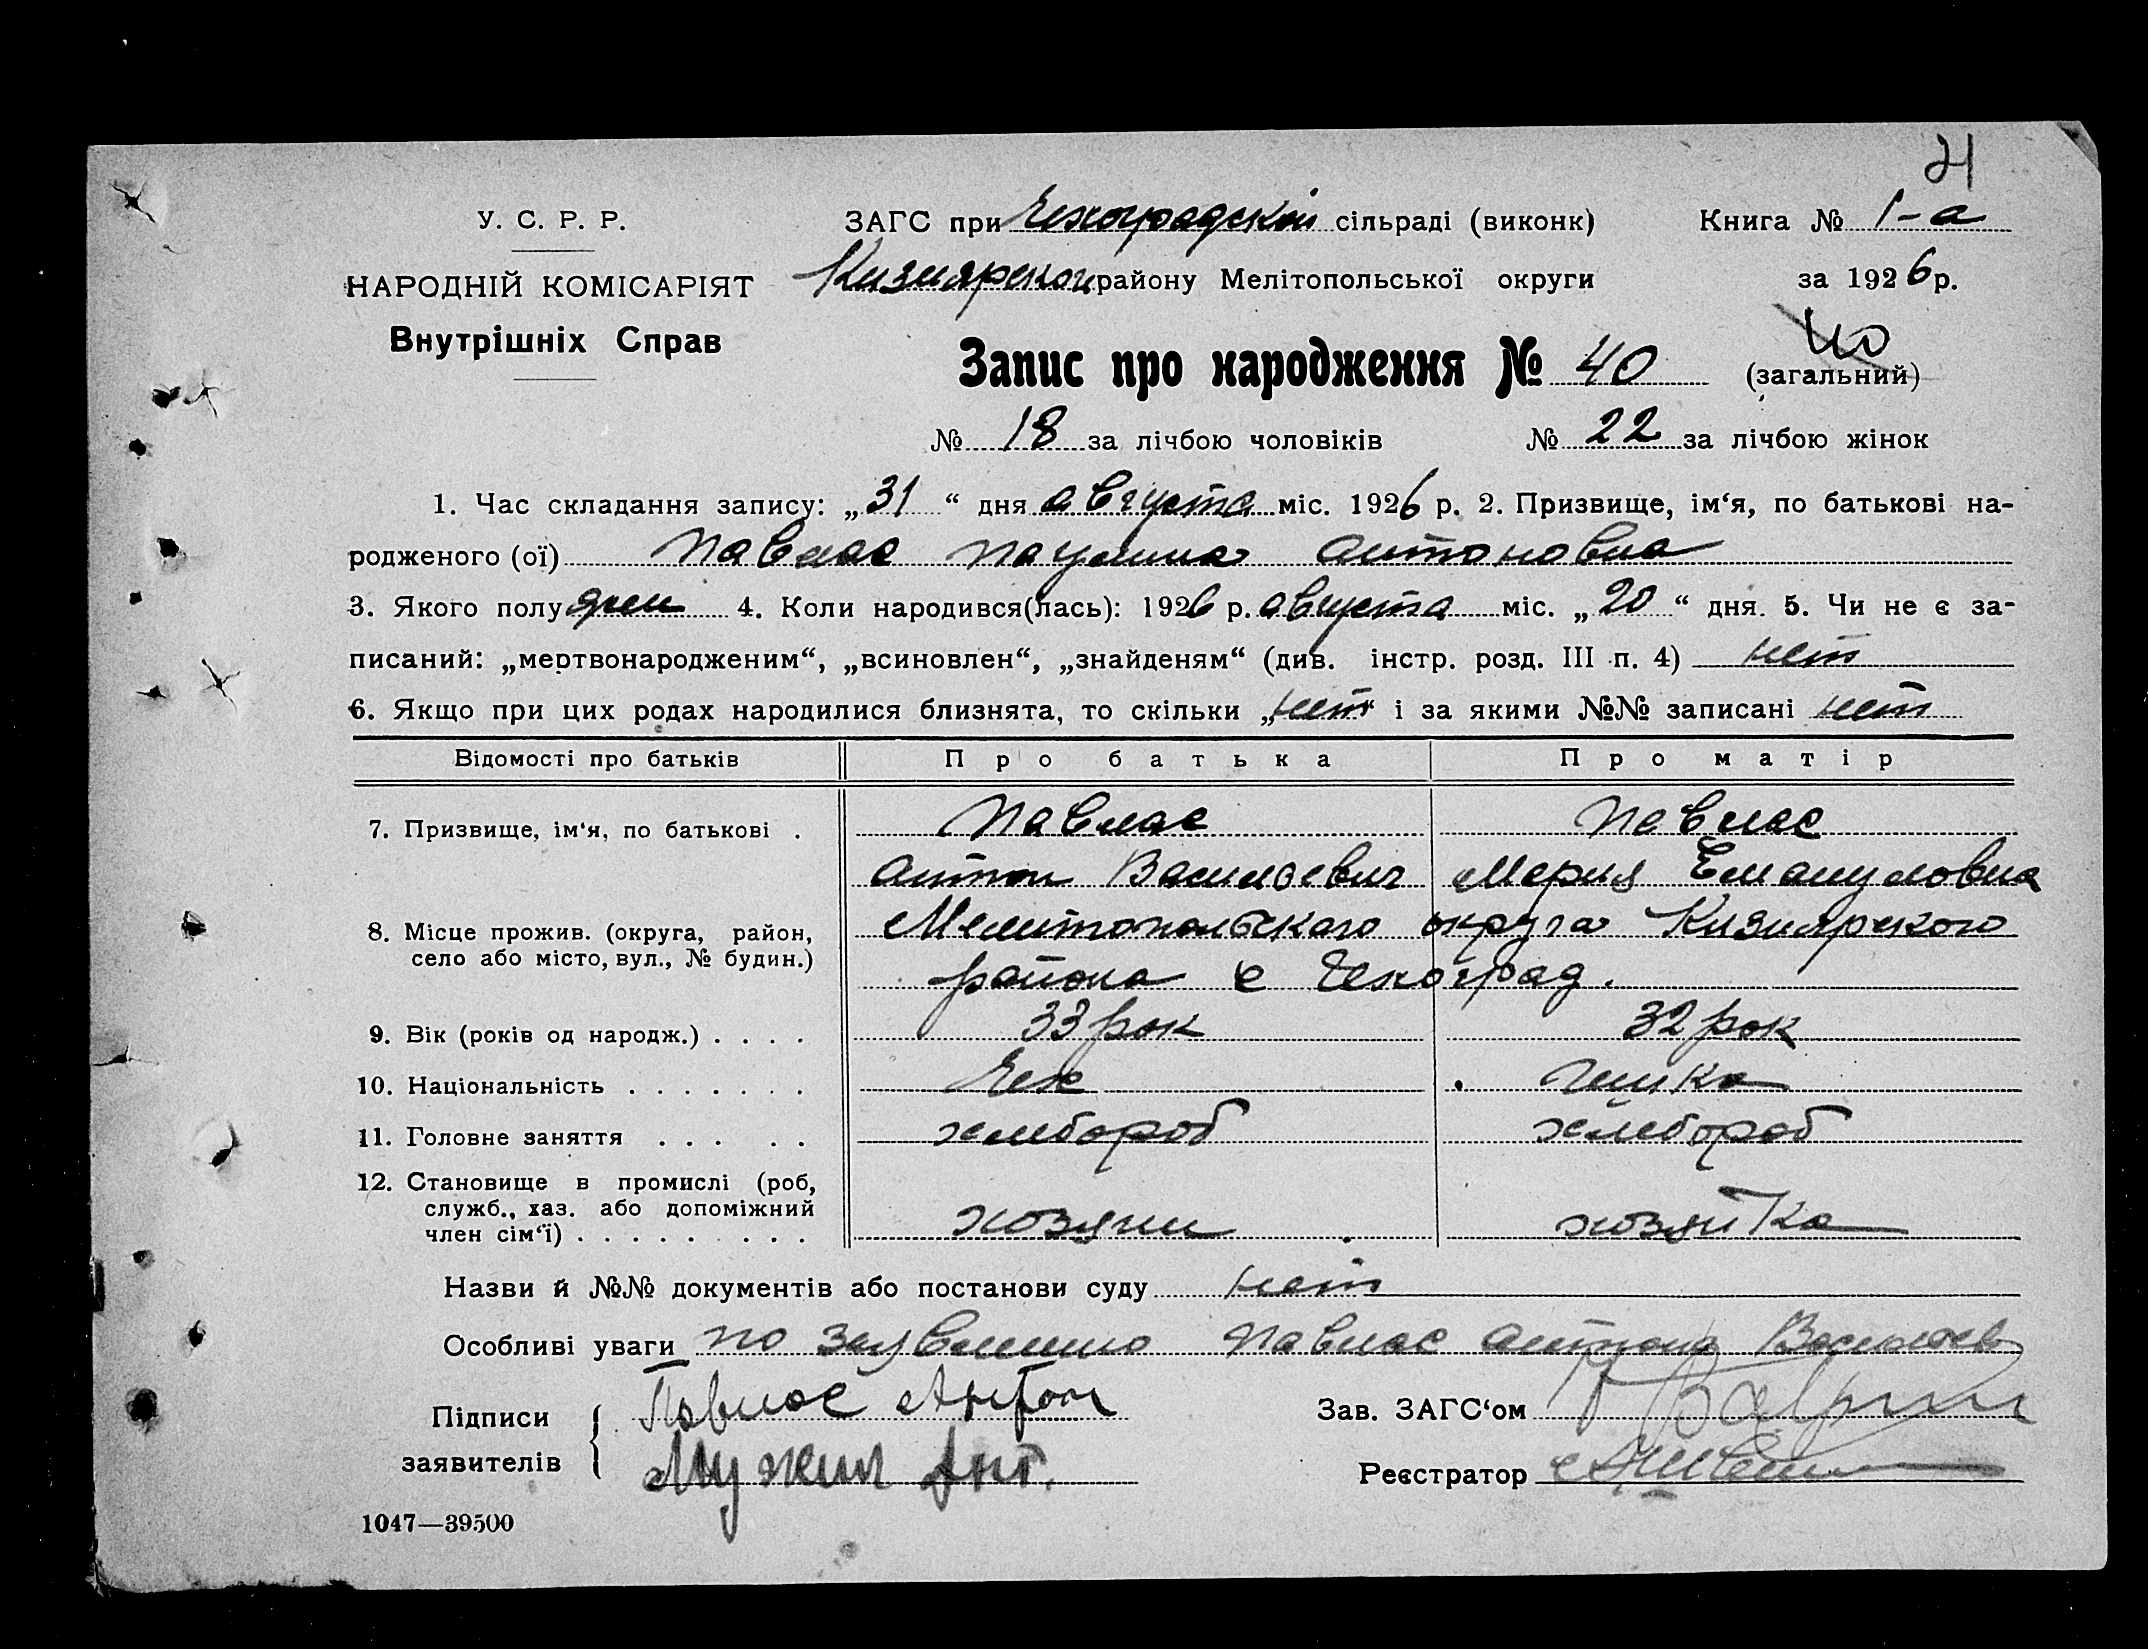 21
У. С. Р. Р.
ЗАГС при Чехоградской сільраді (виконк)
Книга № 1-а
НАРОДНІЙ КОМІСАРІЯТ
Кизиярской району Мелітопольської округи
за 1926 р.
Внутрішніх Справ
40
Запис про народження № 40 (загальний)
№ 18 за лічбою чоловіків № 22 за лічбою жінок
1. Час складання запису: „31“ дня августа міс. 1926 р. 2. Призвище, ім‘я, по батькові на-
родженого (ої) Павлас Паулина Антоновна
3. Якого полу жен 4. Коли народився(лась): 1926 р. августа міс. „20“ дня. 5. Чи не є за-
писаний: „мертвонародженим“, „всиновлен“, „знайденям“ (див. інстр. розд. III п. 4) нет
6. Якщо при цих родах народилися близнята, то скільки „нет“ і за якими №№ записані нет
Відомості про батьків Про батька Про матір
7. Призвище, ім‘я, по батькові . Павлас Павлас
Антон Васильевич Мария Емануловна
8. Місце прожив. (округа, район, Мелитопольского округа Кизиярского
село або місто, вул., № будин.) района с Чехоград.
9. Вік (років од народж.) . . . . 33 рок 32 рок
10. Національність . . . . . . . Чех Чешка
11. Головне заняття . . . . . хлебороб хлебороб
12. Становище в промислі (роб,
служб., хаз. або допоміжний
член сім‘ї) . . . . . . . . . хозяин хозяйка
Назви й №№ документів або постанови суду нет
Особливі уваги по заявлению Павлас Антона Васильев
Підписи Павлас Антон Зав. ЗАГС‘ом
заявителів Мужик Ант. Реєстратор
1047—39500